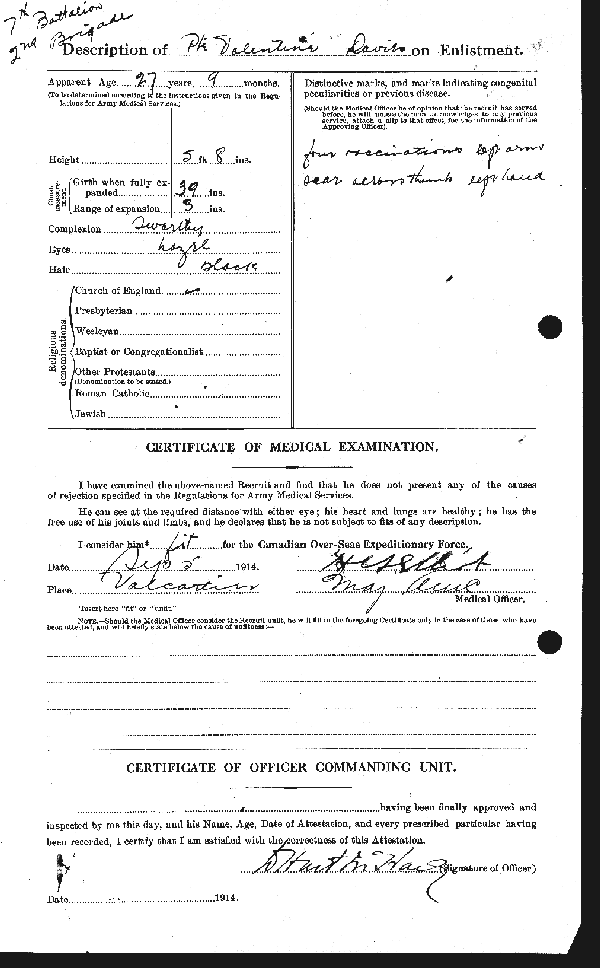 7th Battalion
2nd Brigade
Description of Pte Valentine Davis on Enlistment.
Apparent Age 27 years 9 months.
(To be determined according to the instructions given in the Regulations for Army Medical Services.)
Height 5 ft. 8 ins.
Chest measurement
Girth when fully expanded 39 ins.
Range of expansion 3 ins.
Complexion Swarthy
Eyes hazel
Hair black
Religious denominations
Church of England
Presbyterian
Wesleyan
Baptist or Congregationalist
Other Protestants
(Denomination to be stated.)
Roman Catholic
Jewish
Distinctive marks, and marks indicating congenital
peculiarities or previous disease.
(Should the Medical Officer be of opinion that the recruit has served
before, he will, unless the man acknowledges to any previous
service, attach a slip to that effect, for the information of the
Approving Officer).
four vaccinations left arm
scar across thumb left hand
CERTIFICATE OF MEDICAL EXAMINATION.
I have examined the above-named Recruit and find that he does not present any of the causes
of rejection specified in the Regulations for Army Medical Services.
He can see at the required distance with either eye; his heart and lungs are healthy; he has the
free use of his joints and limbs, and he declares that he is not subject to fits of any description.
I consider him* fit for the Canadian Over-Seas Expeditionary Force.
Date Sep 5 1914.
Place Valcartier
Maj
Medical Officer.
*Insert here "fit" or "unfit."
NOTE.—Should the Medical Officer consider the Recruit unfit, he will fill in the foregoing Certificate only in the case of those who have
been attested, and will briefly state below the cause of unfitness:—
CERTIFICATE OF OFFICER COMMANDING UNIT.
having been finally approved and
inspected by me this day, and his Name, Age, Date of Attestation, and every prescribed particular having
been recorded, I certify that I am satisfied with the correctness of this Attestation.
Hart McHarg (Signature of Officer)
Date 1914.